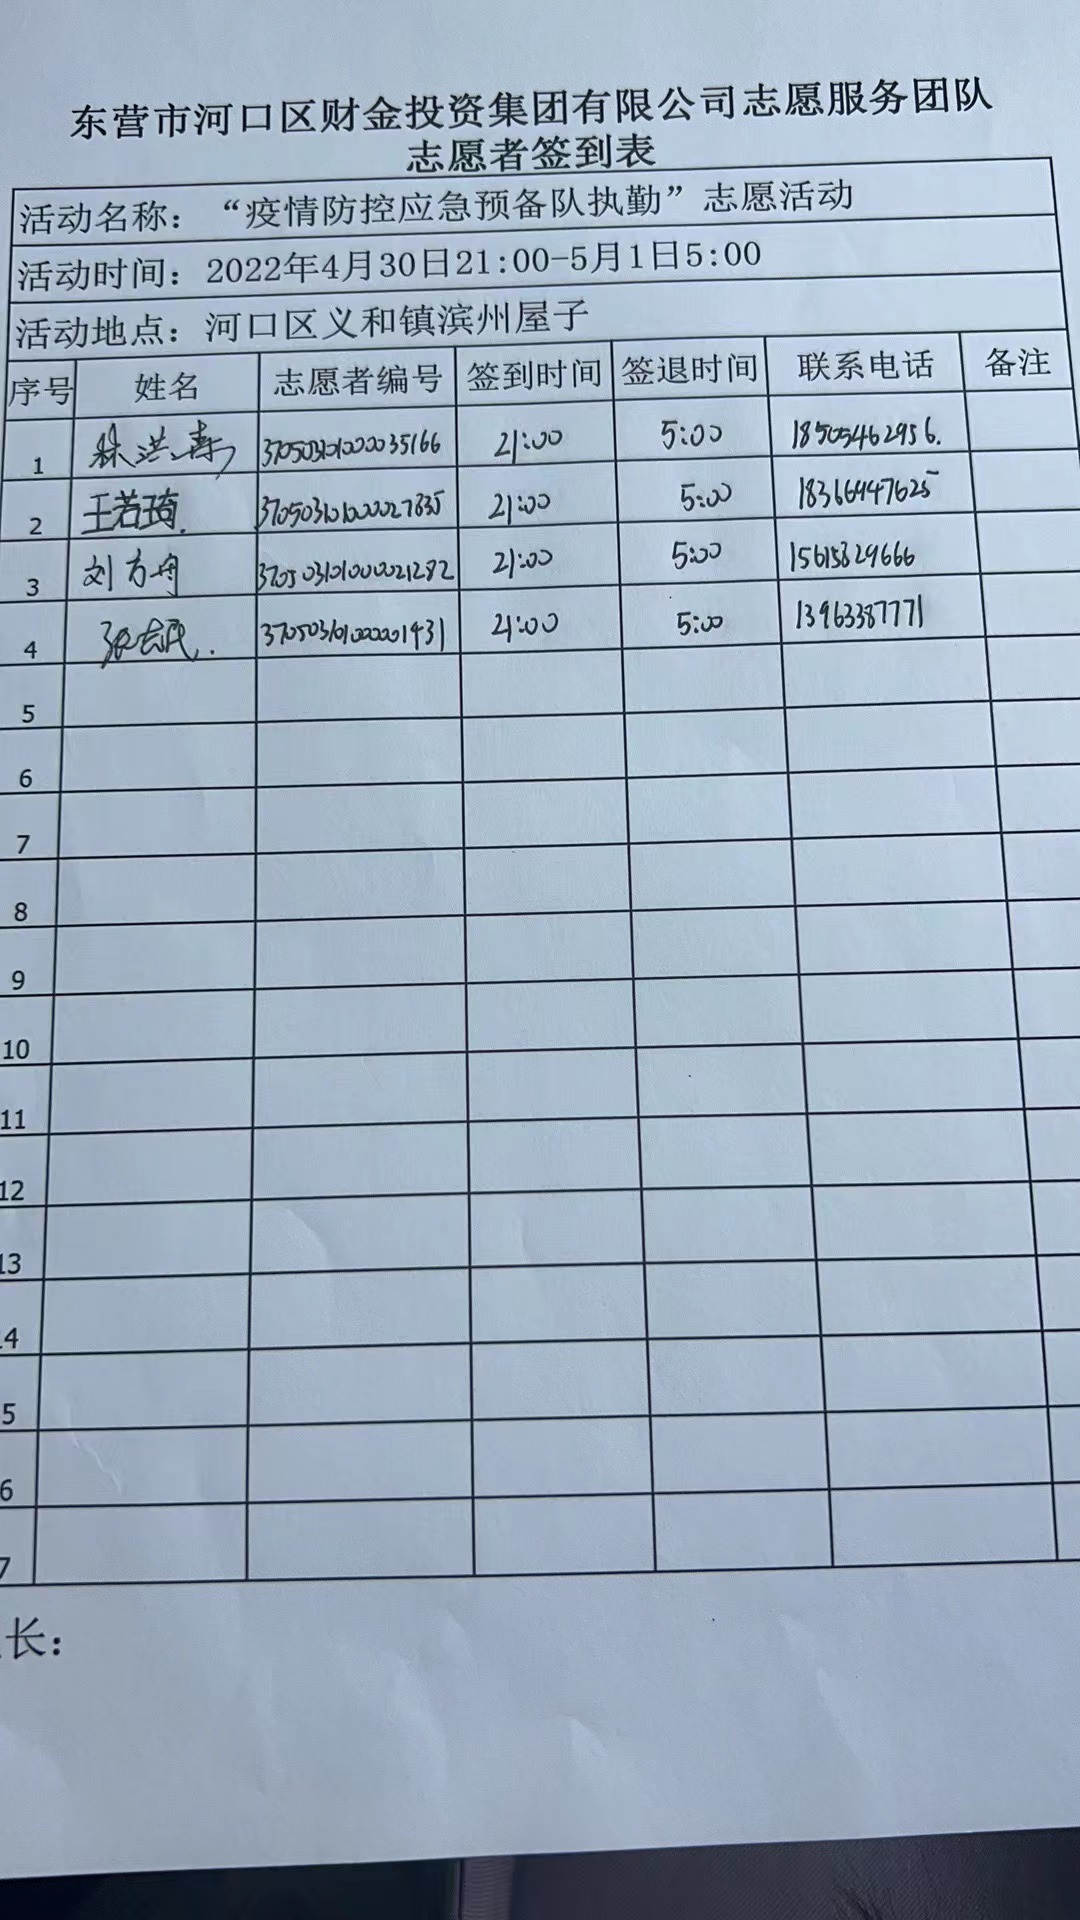 东营市河口区财金投资集团有限公司志愿服务团队
志愿者签到表
活动名称：“疫情防控应急预备队执勤”志愿活动
活动时间：2022年4月30日21:00-5月1日5:00
活动地点：河口区义和镇滨州屋子
序号 姓名 志愿者编号 签到时间 签退时间 联系电话 备注
1 洪寿 3705031010000035166 21:00 5:00 18505462956.
2 王若琦. 21:00 5:00 18366947625
3 刘方舟 3705031010000021282 21:00 5:00 15615829666
4 张志民. 21:00 5:00 13963387771
5
6
7
8
9
10
11
12
13
4
5
6
7
长：